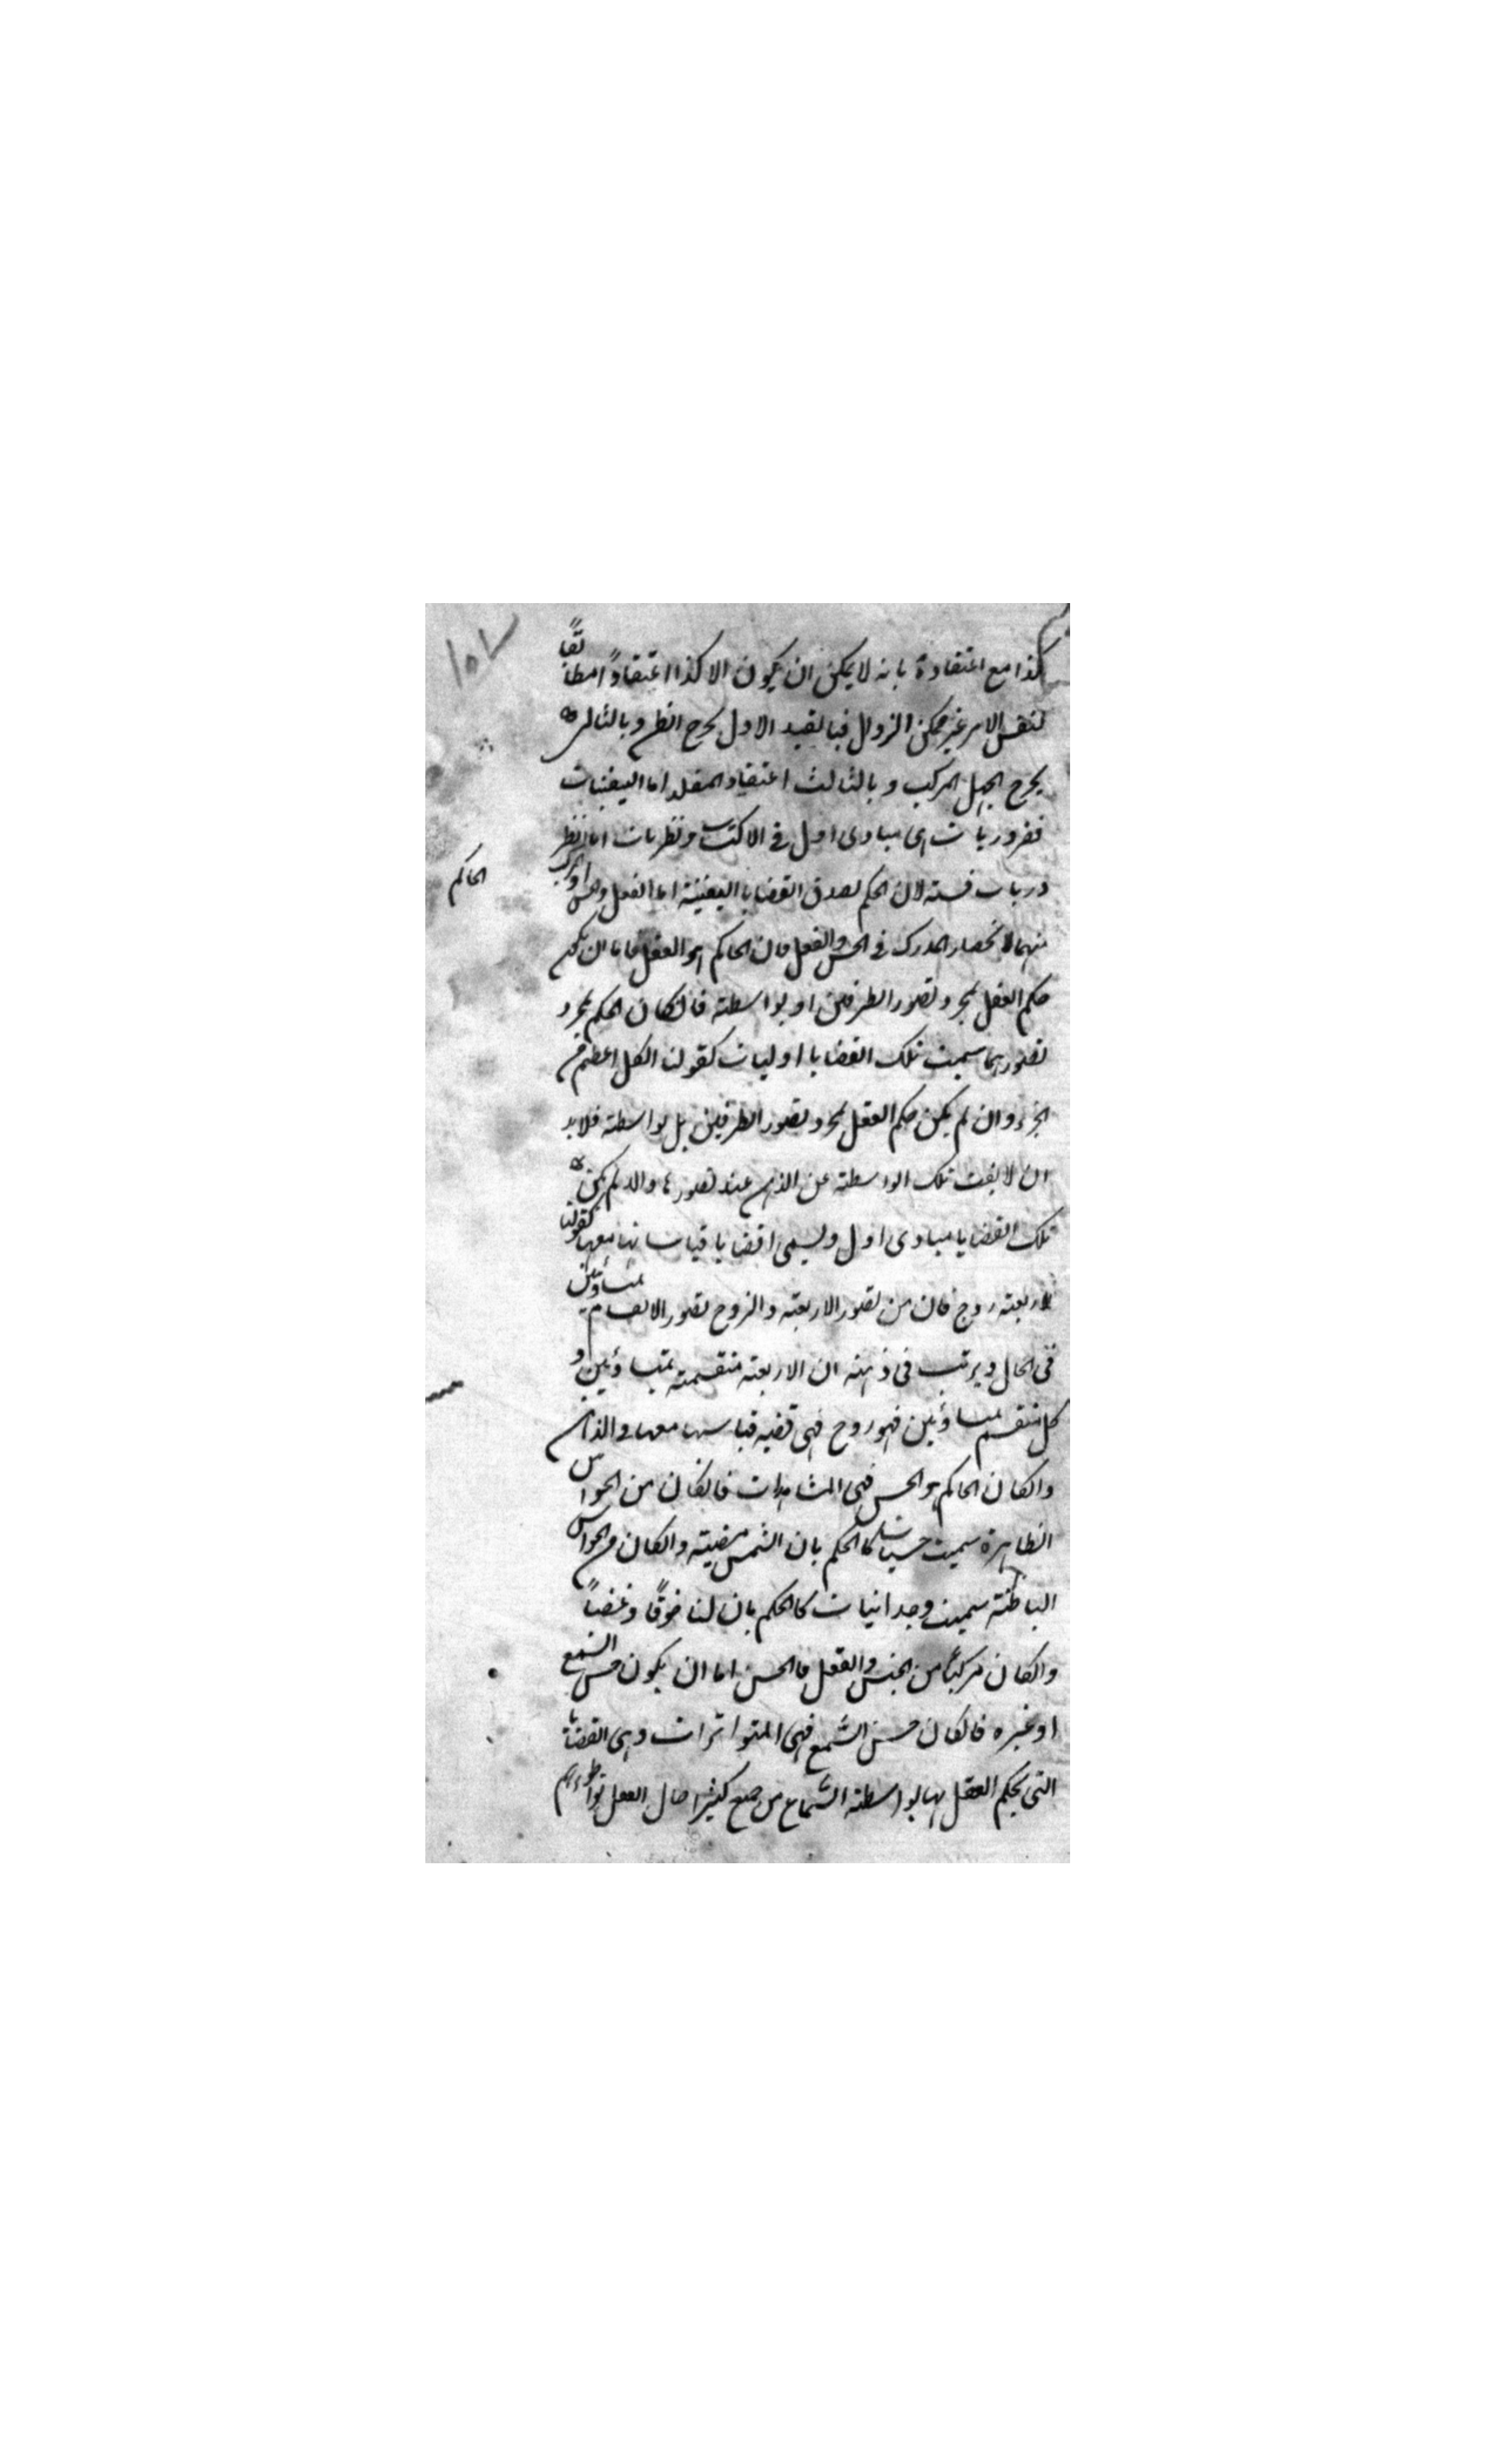 كذا مع اعتقاده بانه لا يمكن ان يكون الا كذا اعتقاداً مطابقاً
لنفس الامر غير ممكن الزوال فبالقيد الاول يخرج الظن وبالثانى
يخرج الجهل المركب و بالثالث اعتقاد المقلد اما اليقينيات
فضروريات هى مبادى اول فى الاكتساب ونظريات اما الضر
دريات فستة لان الحكم بصدق القضايا اليقينية اما العقل والحس او المركب
الحاكم
منهما لانحصار المدرك فى الحس والعقل فان الحاكم هو العقل فاما ان يكون
حكم العقل بمجرد تصور الطرفين او بواسطة فان كان الحكم بمجرد
تصورهما سميت تلك القضايا اوليات كقولنا الكل اعظم من
الجزء وان لم يكن حكم العقل بمجرد تصور الطرفين بل بواسطة فلا بد
ان لا يغيب تلك الواسطة عن الذهن عند تصورها والا لم يكن
تلك القضايا مبادى اول ويسمى قضايا قياساتها معها كقولنا
الاربعة زوج فان من تصور الاربعة والزوج تصور الانقسام بمتساويين
فى الحال ويرتب فى ذهنه ان الاربعة منقسمة بمتساويين و
كل منقسم بمتساويين فهو زوج فهى قضيه قياسها معها فى الذهن
وان كان الحاكم هو الحس فهى المشاهدات فان كان من الحواس
الظاهرة سميت حسيات كالحكم بان الشمس مضيئة وان كان من الحواس
الباطنة سميت وجدانيات كالحكم بان لنا خوفاً وغضباً
وان كان مركباً من الحس والعقل فالحس اما ان يكون حس السمع
او غيره فان كان حس السمع فهى المتواترات وهى القضايا
التى يحكم العقل بها بواسطة السماع من جمع كثير احال العقل تواطؤهم